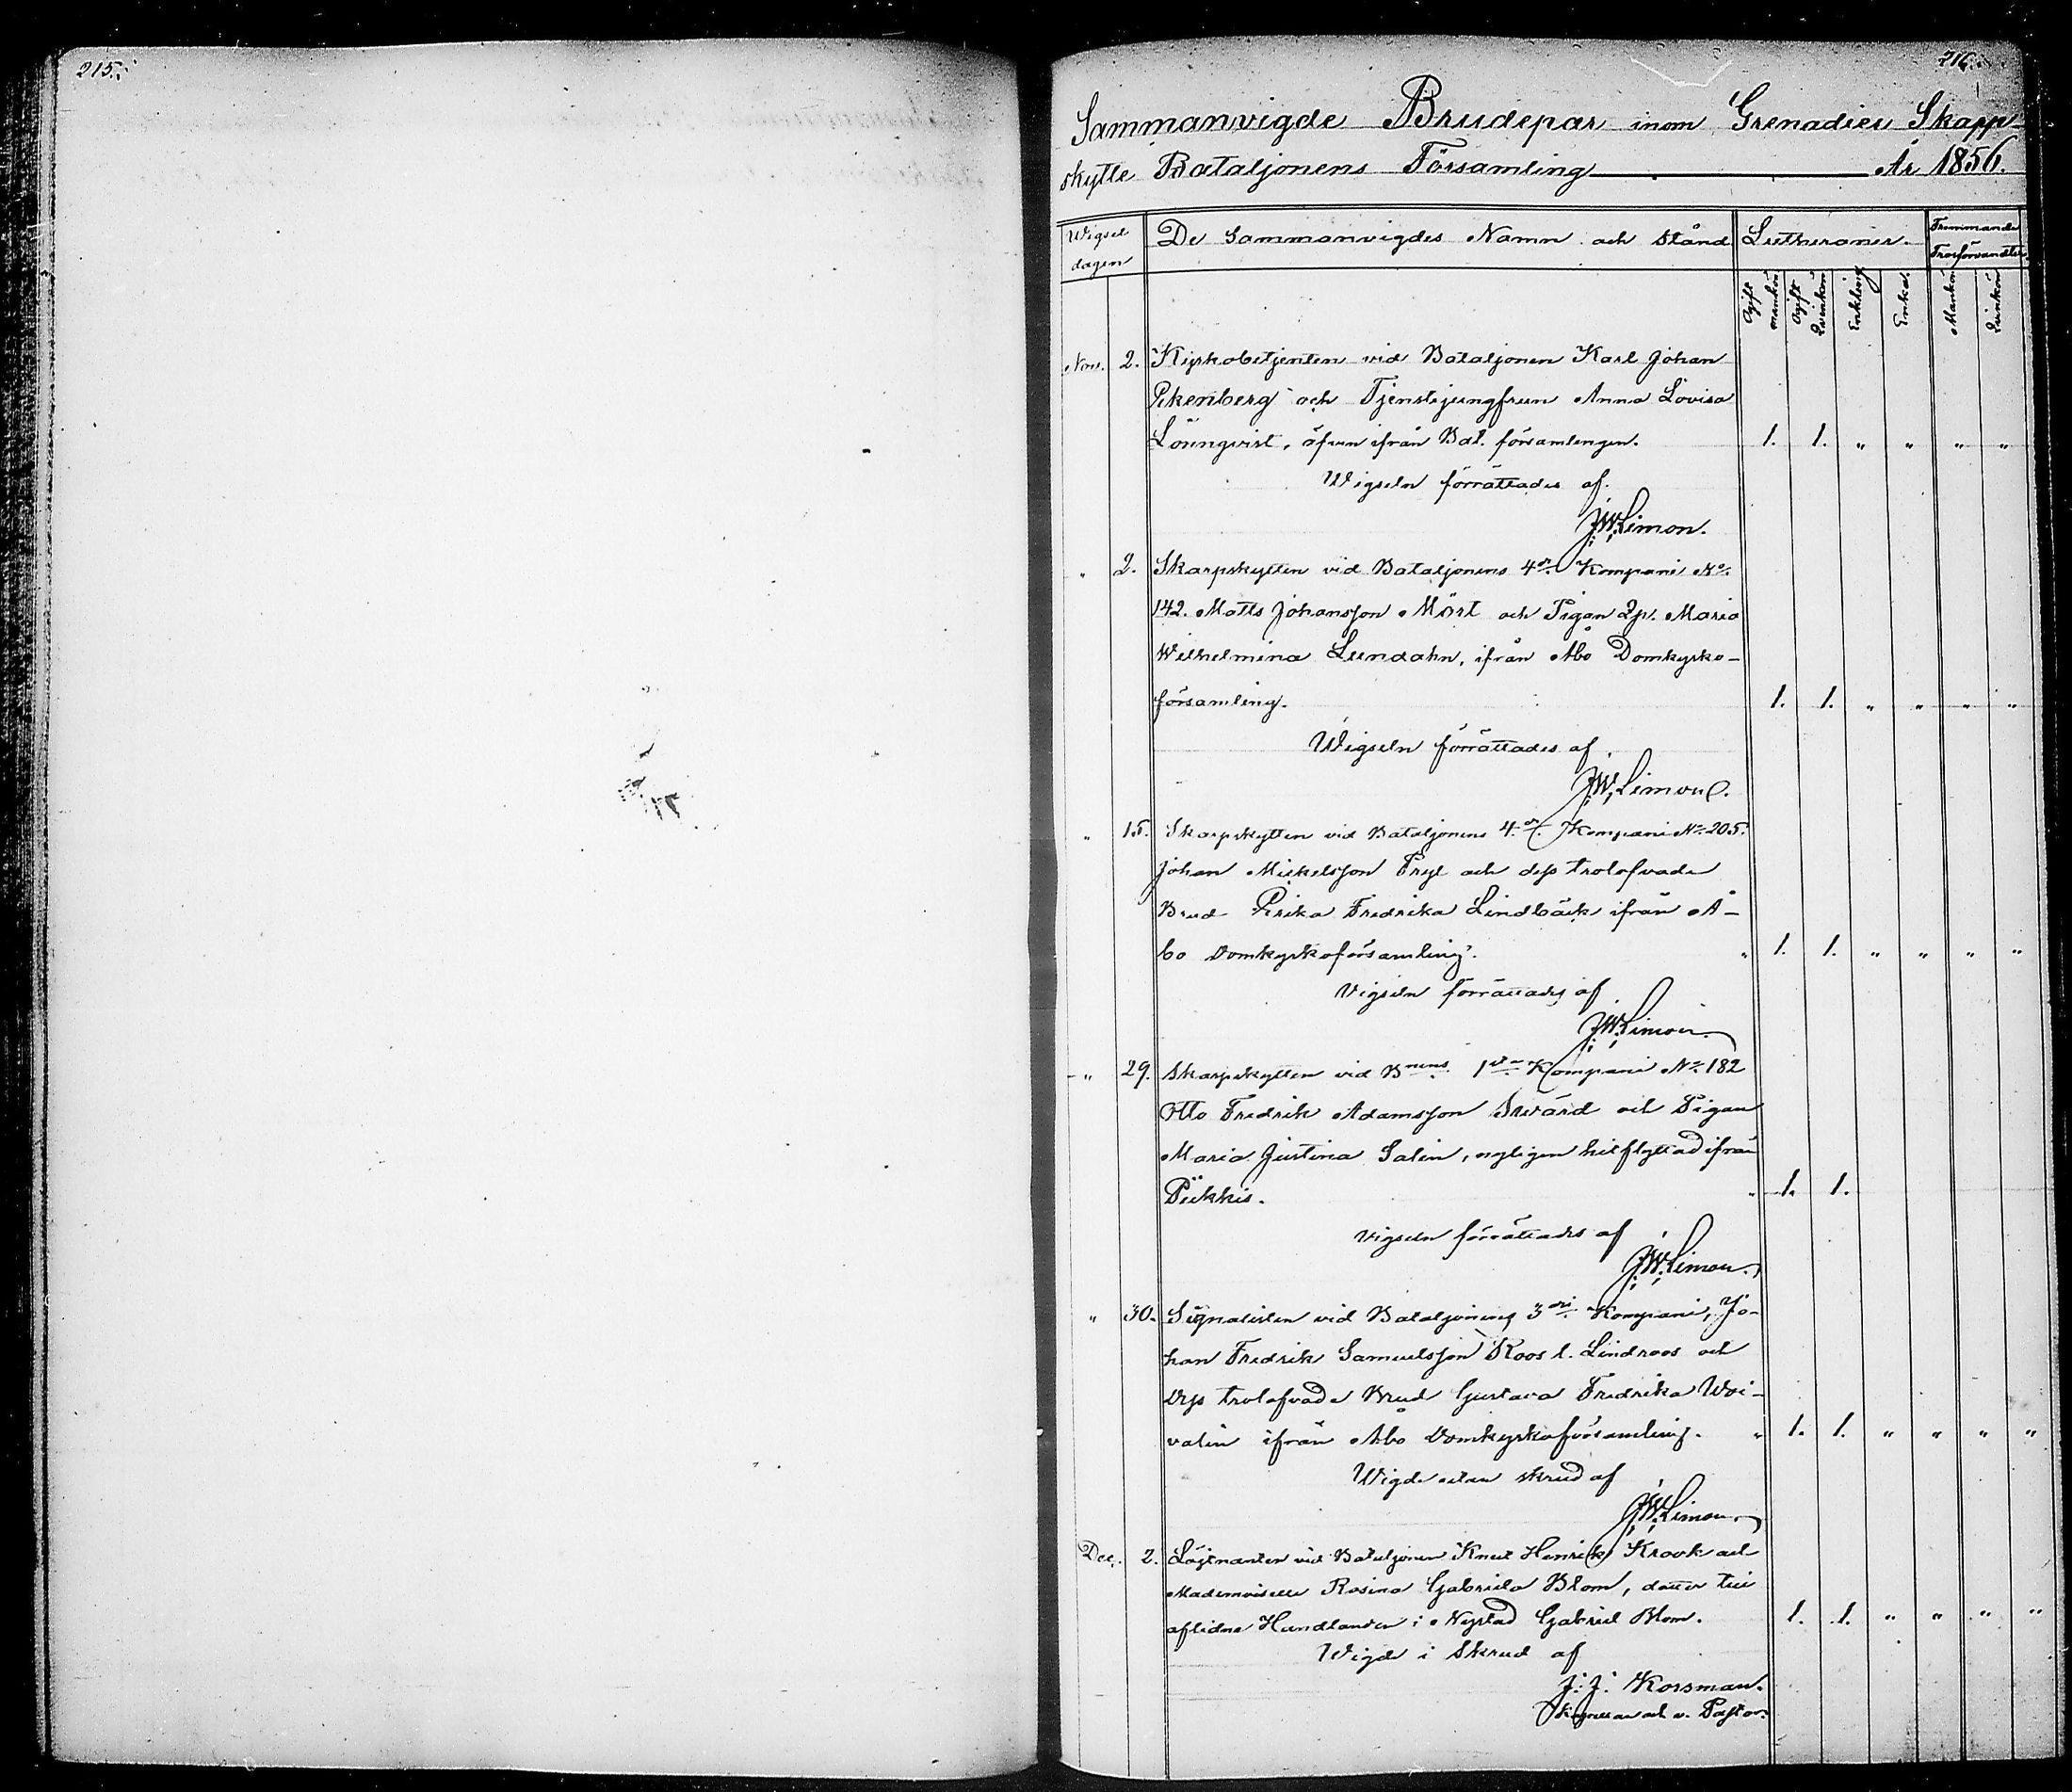 215.
216.
Sammanvigde Brudepar inom Grenadier Skarp-
skytte Bataljonens Församling År 1856.
Wigsel De Sammanvigdes Namn och stånd Lutheraner. Främmande
dagen Trosförvandter
Ogift mankön Ogift Qvinkön Enkling Enka Mankön Qvinkön
Nov. 2. Kyrkobetjenten vid Bataljonen Karl Johan
Ekenberg och Tjenstejungfrun Anna Lovisa
Lönnqvist, äfven ifrån Bat. församlingen. 1. 1. " " " "
Wigseln förrättades af.
J.W. Limon.
" 2. Skarpskytten vid Bataljonens 4de Kompani No.
142. Matts Johansson Mört och Pigan Maria
Wilhelmina Lundahn, ifrån Åbo Domkyrko-
församling. 1. 1. " " " "
Wigseln förrättades af
J.W. Limon.
" 15. Skarpskytten vid Bataljonens 4de Kompani No. 205.
Johan Mickelsson Fryl och dess trolofvade
Brud Erika Fredrika Lindbäck ifrån Å-
bo Domkyrkoförsamling. " 1. 1. " " " "
Vigseln förrättades af
J.W. Limon
" 29. Skarpskytten vid Bnens 1sta Kompani No. 182
Otto Fredrik Adamsson Swärd och Pigan
Maria Justina Salin, nyligen hitflyttad ifrån
Piikkis. " 1. 1.
Vigseln förrättades af
J.W. Limon.
" 30. Signalisten vid Bataljonens 3dje Kompani, Jo-
han Fredrik Samuelsson Roos l. Lindroos och
Dess trolofvade Brud Gustava Fredrika Woi-
valin ifrån Åbo Domkyrkoförsamling. " 1. 1. " " " "
Wigde utan skrud af
J.W. Limon.
Dec. 2. Löjtnanten vid Bataljonen Knut Henrik Krook och
Mademoiselle Rosina Gabriela Blom, dotter till
aflidne Handlanden i Nystad Gabriel Blom. 1. 1. " " " "
Wigde i Skrud af
J. J. Korsman.
Kapellan och v. Pastor.